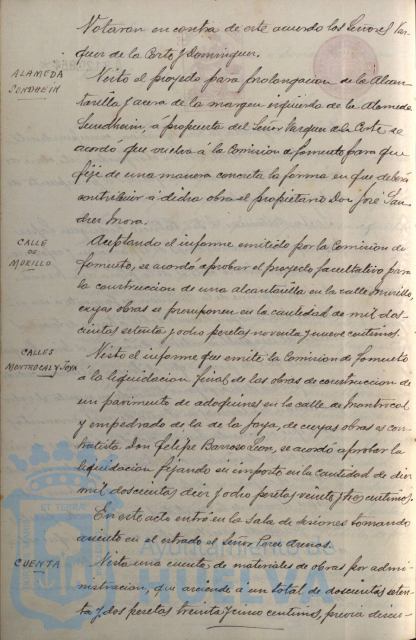 Votaron en contra de este acuerdo los Señores Vaz-
quez de la Corte y Dominguez.
ALAMEDA
SUNDHEIN
Visto el proyecto para prolongacion de la Alcan-
tarilla y acera de la margen izquierda de la Alameda
Sundhein, á propuesta del Señor Vazquez de la Corte se
acordó que vuelva á la Comision de fomento para que
fije de una manera concreta la forma en que deberá
contribuir á dicha obra el propietario Don José San-
chez Mora.
CALLE
DE
MURILLO
Aceptando el informe emitido por la Comision de
fomento, se acordó aprobar el proyecto facultativo para
la construccion de una alcantarilla en la calle Murillo,
cuyas obras se presuponen en la cantidad de mil dos-
cientas setenta y ocho pesetas noventa y nueve centimos.
CALLES
MONTROCAL Y JOYA
Visto el informe que emite la Comision de Fomento
á la liquidacion final de las obras de construccion de
un pavimento de adoquines en la calle de Montrocal
y empedrado de la de la Joya, de cuyas obras es con-
tratista Don Felipe Barroso Leon, se acordó aprobar la
liquidacion fijando su importe en la cantidad de diez
mil doscientas diez y ocho pesetas veinte y tres centimos.
En este acto entró en la Sala de Sesiones tomando
asiento en el estrado el Señor Perez Arenas.
CUENTA
Vista una cuenta de materiales de obras por admi-
nistracion, que asciende á un total de doscientas seten-
ta y dos pesetas treinta y cinco centimos, previa discu-
Ayuntamiento de
HUELVA